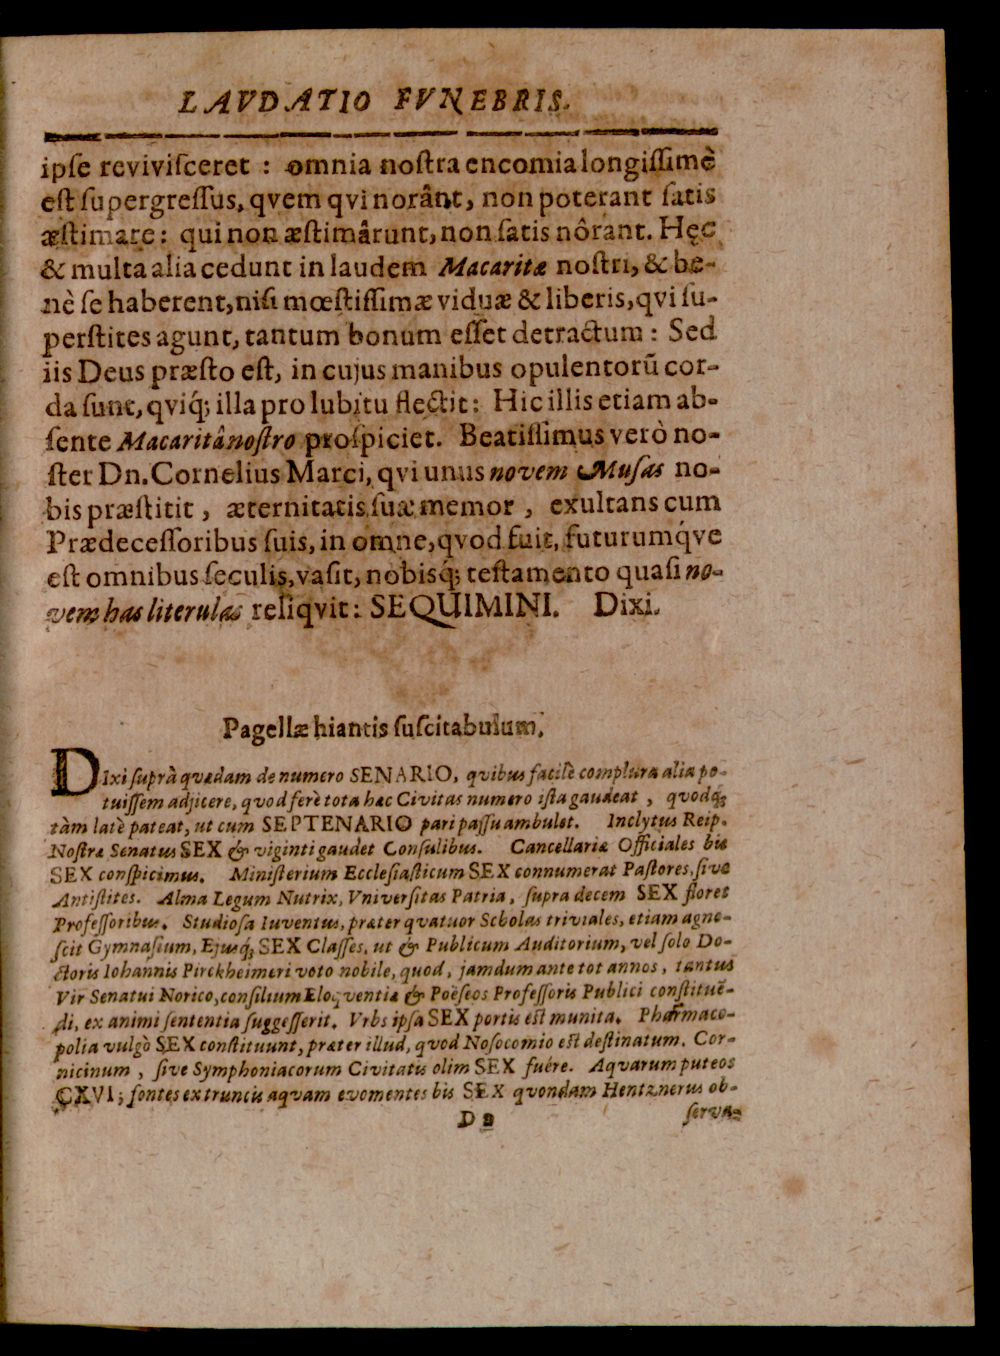 LAVDATIO FVNEBRIS.
ipſe reviviſceret : omnia noſtra encomia longiſſimè
eſt ſupergreſſus, qvem qvi norânt, non poterant ſatis
æſtimare: qui non æſtimârunt, non ſatis nôrant. Hęc
& multa alia cedunt in laudem Macaritæ noſtri, & be-
nè ſe haberent, niſi mœſtiſſimæ viduæ & liberis, qvi ſu-
perſtites agunt, tantum bonum eſſet detractum : Sed
iis Deus præſto eſt, in cujus manibus opulentorũ cor-
da ſunt, qviq́; illa pro lubitu flectit: Hic illis etiam ab-
ſente Macaritâ noſtro proſpiciet. Beatiſſimus verò no-
ſter Dn. Cornelius Marci, qvi unus novem Muſas no-
bis præſtitit , æternitatis ſuæ memor , exultans cum
Prædeceſſoribus ſuis, in omne, qvod fuit, futurumq́ve
eſt omnibus ſeculis, vaſit, nobisq́; teſtamento quaſi no-
vem has literulas reliqvit: SEQUIMINI. Dixi.
Pagellæ hiantis ſuſcitabulum.
DIxi ſuprà quædam de numero SENARIO, quibus facilè complura alia po-
tuiſſem adjicere, quod ferè tota hæc Civitas numero iſta gaudeat , quodq́;
tàm latè pateat, ut cum SEPTENARIO pari paſſu ambulet. Inclytus Reip.
Noſtræ Senatus SEX & viginti gaudet Conſulibus. Cancellariæ Officiales bis
SEX conſpicimus. Miniſterium Eccleſiaſticum SEX connumerat Paſtores, ſive
Antiſtites. Alma Legum Nutrix, Vniverſitas Patria , ſupra decem SEX floret
Profeſſoribus. Studioſa Iuventus, præter qvatuor Scholas triviales, etiam agno-
ſcit Gymnaſium, Ejusq́; SEX Claſſes, ut & Publicum Auditorium, vel ſolo Do-
ctoris Iohannis Pirckheimeri voto nobile, quod , jamdum ante tot annos , tantus
Vir Senatui Norico, conſilium Eloqventiæ & Poëſeos Profeſſoris Publici conſtituē-
di, ex animi ſententia ſuggeſſerit. Vrbs ipſa SEX portis eſt munita. Pharmaco-
polia vulgò SEX conſtituunt, præter illud, quod Noſocomio eſt deſtinatum. Cor-
nicinum , ſive Symphoniacorum Civitatis olim SEX fuére. Aquarum puteos
CXVI; fontes ex truncis aquam evomentes bis SEX quondam Hentznerus ob-
D 2
ſerva-